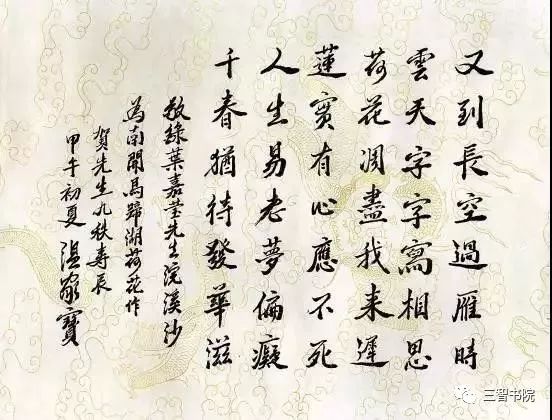 又到長空過雁時
雲天字字寫相思
荷花凋盡我来遲
蓮實有心應不死
人生易老夢偏癡
千春猶待發華滋
敬錄葉嘉莹先生浣溪沙
為南開馬蹄湖荷花作
賀先生九秩寿辰
甲午初夏 温家寶
三智书院